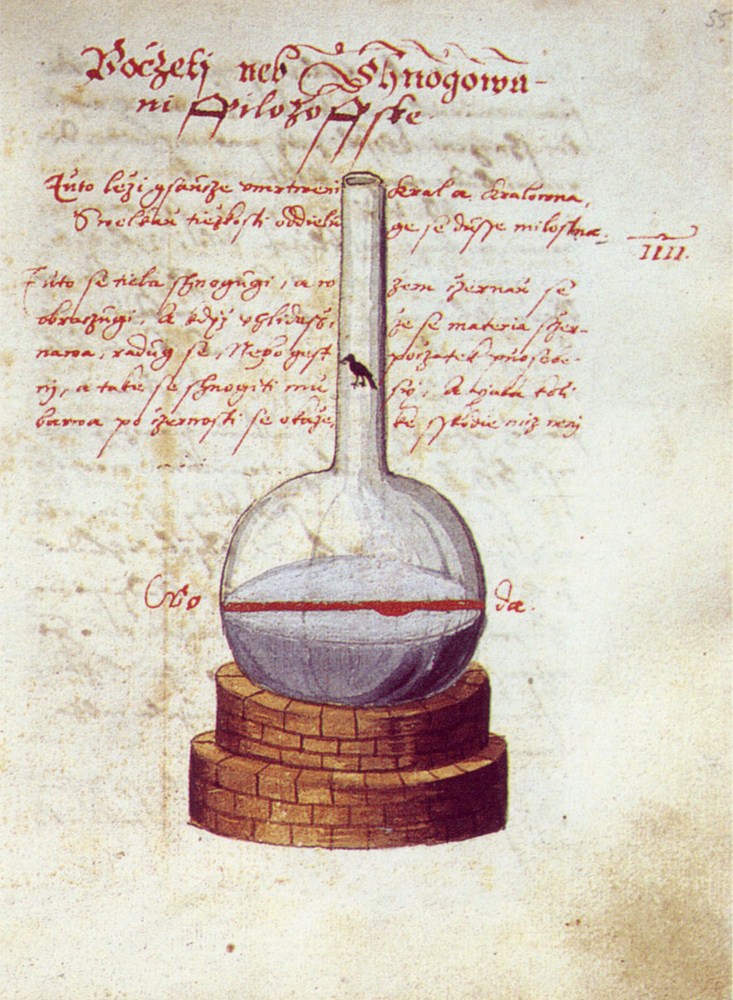 55
Počzetj neb Shnogowa-
ni ffilozoffske
Tuto leži gsaucze vmrtweni Kral a Kralowna,
S welkau tiežkosti oddielu ge se dusse milostna.
IIII.
Tuto se tiela shnogugi, a w zem čzernau se
obraczugi. A když vhlidass, že se materia sčzer-
nawa, radug se. Nebo gest počzatek
nj, a take se shnogiti mu sy. A koli
barwa po čzernosti se vkaže, niz neni
Wo da.